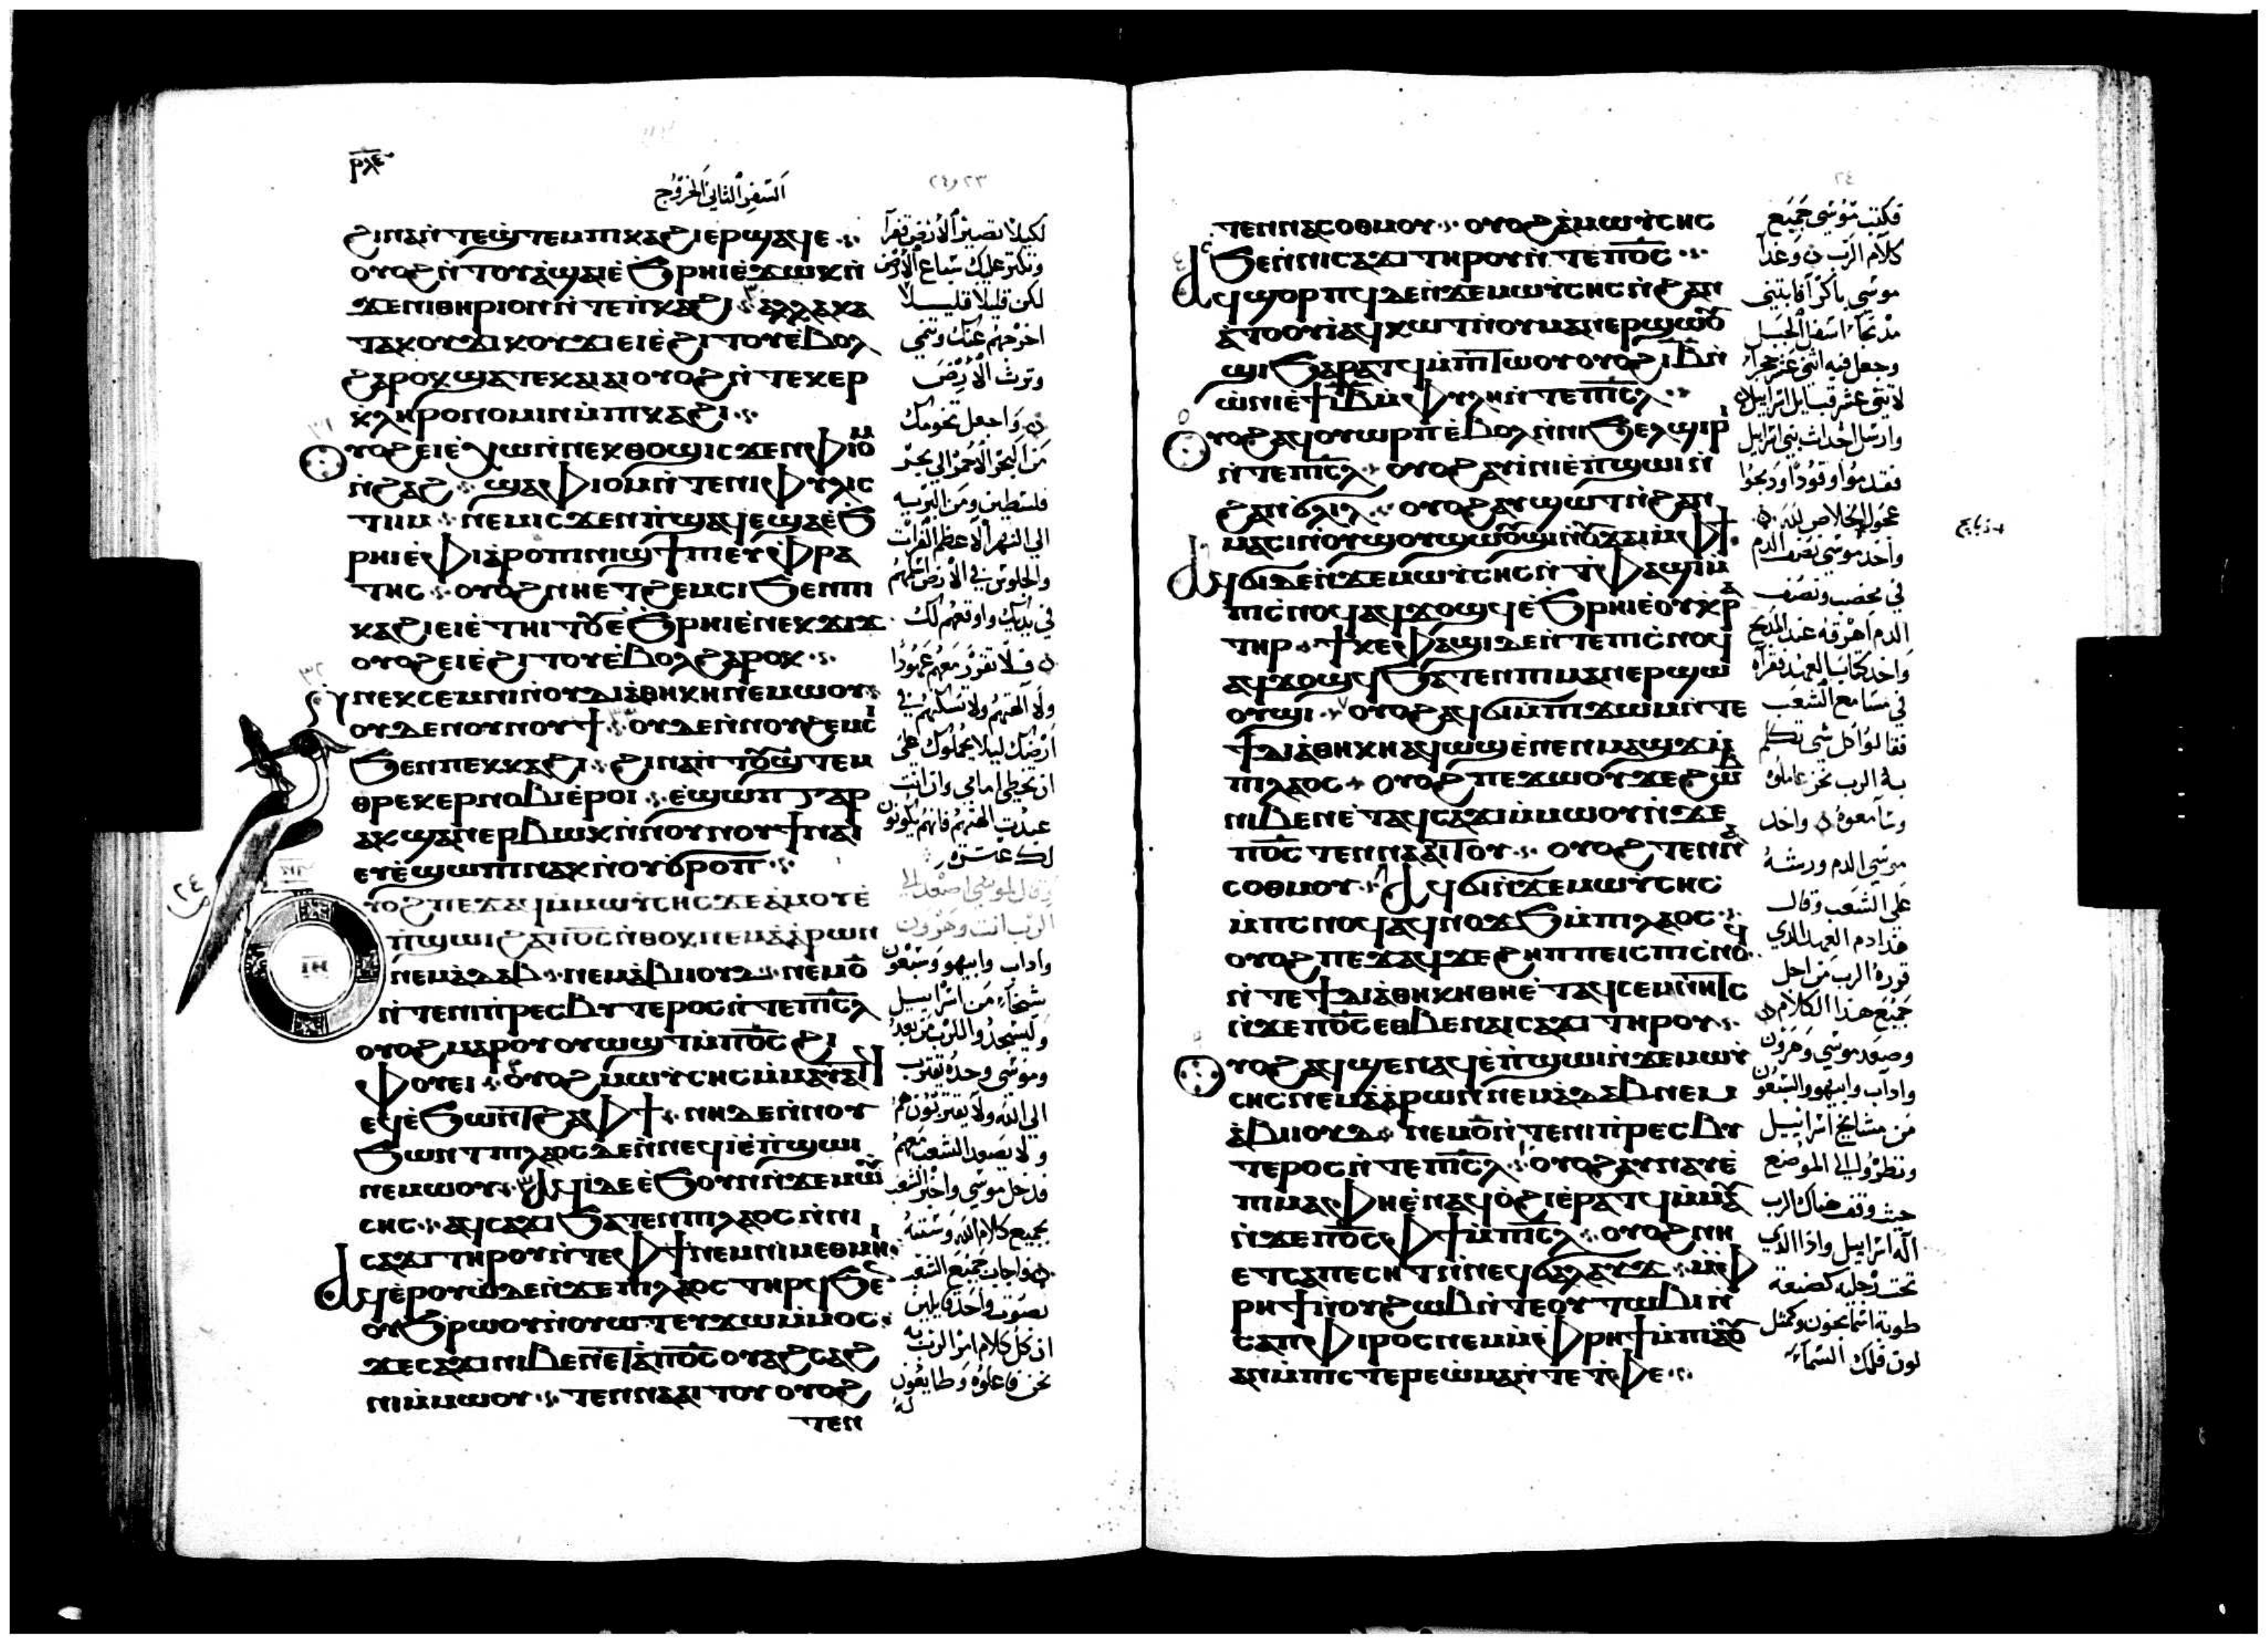 ⲣⲗⲉ
السفر الثاني الخروج
٢٣ و ٢٤
ϩⲓⲛⲁ ⲛ̀ⲧⲉϣⲧⲉⲙⲡⲕⲁϩⲓ ⲉⲣϣⲁϥⲉ
ⲟⲩⲟϩ ⲛ̀ⲧⲟⲩⲁ̀ϣⲁⲓ ⲉ̀ϧⲣⲏⲓ ⲉ̀ϫⲱⲕ ⲛ̀
ϫⲉⲛⲓⲑⲏⲣⲓⲟⲛ ⲛ̀ⲧⲉⲡ̀ⲕⲁϩⲓ ⲁⲗⲗⲁ ⲕⲁ
ⲧⲁⲕⲟⲩϫⲓ ⲕⲟⲩϫⲓ ⲉⲓⲉ̀ϩⲓⲧⲟⲩ ⲉ̀ⲃⲟⲗ
ϩⲁⲣⲟⲕ ϣⲁⲧⲉⲕⲁⲓⲁⲓ ⲟⲩⲟϩ ⲛ̀ⲧⲉⲕⲉⲣ
ⲕ̀ⲗⲏⲣⲟⲛⲟⲙⲓⲛ ⲙ̀ⲡⲕⲁϩⲓ
ⲟⲩⲟϩ ⲉⲓⲉ̀ⲭⲱ ⲛ̀ⲛⲉⲕⲑⲟϣ ⲓⲥϫⲉⲛ ⲫⲓⲟⲙ
ⲛ̀ϩⲁϩ ϣⲁ ⲫⲓⲟⲙ ⲛ̀ⲧⲉⲛⲓⲫⲩⲗⲓⲥ
ⲧⲓⲙ ⲛⲉⲙ ⲓⲥϫⲉⲛ ⲡ̀ϣⲁϥⲉ ϣⲁ ⲉ̀ϧ
ⲣⲏⲓ ⲉ̀ⲫⲓⲁⲣⲟ ⲡⲓⲛⲓϣϯ ⲡⲉⲩⲫⲣⲁ
ⲧⲏⲥ ⲟⲩⲟϩ ⲛⲏⲉⲧϩⲉⲙⲥⲓ ϧⲉⲛ ⲡⲓ
ⲕⲁϩⲓ ⲉⲓⲉ̀ⲧⲏⲓⲧⲟⲩ ⲉ̀ϧⲣⲏⲓ ⲉ̀ⲛⲉⲕϫⲓϫ
ⲟⲩⲟϩ ⲉⲓⲉ̀ϩⲓⲧⲟⲩ ⲉ̀ⲃⲟⲗ ϩⲁⲣⲟⲕ
ⲛⲉⲕⲥⲉⲙⲛⲓ ⲛ̀ⲟⲩⲇⲓⲁ̀ⲑⲏⲕⲏ ⲛⲉⲙⲱⲟⲩ
ⲟⲩⲇⲉ ⲛⲟⲩⲛⲟⲩϯ ⲟⲩⲇⲉ ⲛ̀ⲛⲟⲩϩⲉⲙⲥⲓ
ϧⲉⲛ ⲡⲉⲕⲕⲁϩⲓ ϩⲓⲛⲁ ⲛ̀ⲧⲟⲩϣⲧⲉⲙ
ⲑⲣⲉⲕⲉⲣⲛⲟⲃⲓ ⲉ̀ⲣⲟⲓ ⲉ̀ϣⲱⲡ ⲅⲁⲣ
ⲁⲕϣⲁⲛⲉⲣⲃⲱⲕ ⲛ̀ⲛⲟⲩⲛⲟⲩϯ ⲛⲁⲓ
ⲉⲩⲉ̀ϣⲱⲡⲓ ⲛⲁⲕ ⲛ̀ⲟⲩϭⲣⲟⲡ
ⲩⲟϩ ⲡⲉϫⲁϥ ⲙ̀ⲙⲱⲩⲥⲏⲥ ϫⲉ ⲁ̀ⲙⲟⲩ ⲉ̀
ⲡ̀ϣⲱⲓ ϩⲁ ⲡⲟ̅ⲥ̅ ⲛ̀ⲑⲟⲕ ⲛⲉⲙ ⲁ̀ⲁ̀ⲣⲱⲛ
ⲛⲉⲙ ⲁ̀ⲇⲁⲃ ⲛⲉⲙ ⲁ̀ⲃⲓⲟⲩⲇ ⲛⲉⲙ ⲟ̅
ⲛ̀ⲧⲉⲛⲓⲡ̀ⲣⲉⲥⲃⲩⲧⲉⲣⲟⲥ ⲛ̀ⲧⲉ ⲡⲓ̅ⲥ̅ⲗ
ⲟⲩⲟϩ ⲙⲁⲣⲟⲩⲟⲩⲱϣⲧ ⲙ̀ⲡⲟ̅ⲥ̅ ϩⲓ
ⲫⲟⲩⲉⲓ ⲟⲩⲟϩ ⲙⲱⲩⲥⲏⲥ ⲙ̀ⲙⲁⲩⲁⲧϥ
ⲉϥⲉ̀ϧⲱⲛⲧ ϩⲁ ⲫϯ ⲛⲏ ⲇⲉ ⲛ̀ⲛⲟⲩ
ϧⲱⲛⲧ ⲡⲓⲗⲁⲟⲥ ⲇⲉ ⲛ̀ⲛⲉϥⲓ̀ ⲉ̀ⲡ̀ϣⲱⲓ
ⲛⲉⲙⲱⲟⲩ ⲁϥⲓ̀ ⲇⲉ ⲉ̀ϧⲟⲩⲛ ⲛ̀ϫⲉⲙⲱⲩ
ⲥⲏⲥ ⲁϥⲥⲁϫⲓ ϧⲁⲧⲉⲛ ⲡⲓⲗⲁⲟⲥ ⲛ̀ⲛⲓ
ⲥⲁϫⲓ ⲧⲏⲣⲟⲩ ⲛ̀ⲧⲉ ⲫϯ ⲛⲉⲙ ⲛⲓⲙⲉⲑⲙⲏⲓ
ⲁϥⲉ̀ⲣⲟⲩⲱ̀ ⲇⲉ ⲛ̀ϫⲉⲡⲓⲗⲁⲟⲥ ⲧⲏⲣϥ ϧⲉⲛ
ⲟⲩϧⲣⲱⲟⲩ ⲛ̀ⲟⲩⲱⲧ ⲉⲩϫⲱ ⲙ̀ⲙⲟⲥ
ϫⲉ ⲥⲁϫⲓ ⲛⲓⲃⲉⲛ ⲉ̀ⲧⲁ ⲡⲟ̅ⲥ̅ ⲟⲩⲁϩⲥⲁϩ
ⲛⲓ ⲙ̀ⲙⲱⲟⲩ ⲧⲉⲛⲛⲁⲁⲓⲧⲟⲩ ⲟⲩⲟϩ
ⲧⲉⲛ
لكيلا تصير الارض قفرا
وتكثر عليك سباع الارض
لكن قليلا قليلا
اخرجهم عنك وتنمي
وترث الارض
واجعل تخومك
من البحر الاحمر الى بحر
فلسطين ومن البرية
الى النهر الاعظم الفرات
والجلوس في الارض اسلمهم
في يديك واوقعهم لك
فلا تقرر معهم عهودا
ولا الهتهم ولا تسكنهم في
ارضك ليلا يحملوك على
ان تخطي امامي وان انت
عبدت الهتهم فانهم يكونون
لك عثرة
وقال لموسى اصعد الى
الرب انت وهرون
واداب وابيهو وسبعون
شيخا من اسراييل
وليسجدوا للرب من بعد
وموسى وحده يقترب
الى الله ولا يقتربون هم
ولا يصعد الشعب معهم
فدخل موسى واخبر الشعب
بجميع كلام الله وسننه
واجاب جميع الشعب
بصوت واحد قايلين
ان كل كلام امر الرب به
نحن فاعلوه وطايعون
له
٢٤
ⲧⲉⲛⲛⲁⲥⲟⲑⲙⲟⲩ ⲟⲩⲟϩ ⲁ̀ⲙⲱⲩⲥⲏⲥ
ⲥϧⲉ ⲛ̀ⲛⲓⲥⲁϫⲓ ⲧⲏⲣⲟⲩ ⲛ̀ⲧⲉ ⲡⲟ̅ⲥ̅
ⲁϥϣⲟⲣⲡϥ ⲇⲉ ⲛ̀ϫⲉⲙⲱⲩⲥⲏⲥ ⲛ̀ϩⲁⲛ
ⲁ̀ⲧⲟⲟⲩⲓ̀ ⲁϥⲕⲱⲧ ⲛ̀ⲟⲩⲙⲁⲛⲉⲣϣⲱⲟⲩ
ϣⲓ ϧⲁⲣⲁⲧϥ ⲙ̀ⲡⲧⲱⲟⲩ ⲟⲩⲟϩ ⲓ̅ⲃ̅ ⲛ̀
ⲱ̀ⲛⲓ ⲉ̀ϯⲓ̅ⲃ̅ ⲙ̀ⲫⲩⲗⲏ ⲛ̀ⲧⲉ ⲡⲓ̅ⲥ̅ⲗ
ⲟⲩⲟϩ ⲁϥⲟⲩⲱⲣⲡ ⲉ̀ⲃⲟⲗ ⲛ̀ⲛⲓϧⲉⲗϣⲓⲣⲓ
ⲛ̀ⲧⲉ ⲡⲓ̅ⲥ̅ⲗ ⲟⲩⲟϩ ⲁⲩⲓ̀ⲛⲓ ⲉ̀ⲡ̀ϣⲱⲓ ⲛ̀
ϩⲁⲛϭⲗⲓⲗ ⲟⲩⲟϩ ⲁⲩϣⲱⲧ ⲛ̀ϩⲁⲛ
ⲙⲁⲥⲓ ⲛ̀ⲟⲩϣⲟⲩϣⲱⲟⲩϣⲓ ⲛ̀ⲟⲩϫⲁⲓ ⲙ̀ⲫϯ
ⲁϥϭⲓ ⲇⲉ ⲛ̀ϫⲉⲙⲱⲩⲥⲏⲥ ⲛ̀ⲧⲫⲁϣⲓ ⲙ̀
ⲡⲓⲥ̀ⲛⲟϥ ⲁϥϫⲟϣϥ ⲉ̀ϧⲣⲏⲓ ⲉ̀ⲟⲩⲕ̀ⲣⲁ
ⲧⲏⲣ ϯⲕⲉⲫⲁϣⲓ ⲇⲉ ⲛ̀ⲧⲉ ⲡⲓⲥ̀ⲛⲟϥ
ⲁϥϫⲟϣϥ ϧⲁⲧⲉⲛ ⲡⲓⲙⲁⲛⲉⲣϣⲱ
ⲟⲩϣⲓ ⲟⲩⲟϩ ⲁϥϭⲓ ⲙ̀ⲡϫⲱⲙ ⲛ̀ⲧⲉ
ϯⲇⲓⲁ̀ⲑⲏⲕⲏ ⲁϥⲱϣ ⲉ̀ⲛⲉⲛⲙⲁϣϫ ⲙ̀
ⲡⲓⲗⲁⲟⲥ ⲟⲩⲟϩ ⲡⲉϫⲱⲟⲩ ϫⲉ ϩⲱⲃ
ⲛⲓⲃⲉⲛ ⲉ̀ⲧⲁϥⲥⲁϫⲓ ⲙ̀ⲙⲱⲟⲩ ⲛ̀ϫⲉ
ⲡⲟ̅ⲥ̅ ⲧⲉⲛⲛⲁⲁⲓⲧⲟⲩ ⲟⲩⲟϩ ⲧⲉⲛⲛⲁ
ⲥⲟⲑⲙⲟⲩ ⲁϥϭⲓ ⲛ̀ϫⲉⲙⲱⲩⲥⲏⲥ
ⲙ̀ⲡⲥⲛⲟϥ ⲁϥⲛⲟϫϧ ⲙ̀ⲡⲓⲗⲁⲟⲥ
ⲟⲩⲟϩ ⲡⲉϫⲁϥ ϫⲉ ϩⲏⲡⲡⲉ ⲓⲥ ⲡⲓⲥ̀ⲛⲟϥ
ⲛ̀ⲧⲉ ϯⲇⲓⲁ̀ⲑⲏⲕⲏ ⲑⲏ ⲉ̀ⲧⲁϥⲥⲉⲙⲛⲏⲧⲥ
ⲛ̀ϫⲉ ⲡⲟ̅ⲥ̅ ⲉⲑⲃⲉ ⲛⲁⲓⲥⲁϫⲓ ⲧⲏⲣⲟⲩ
ⲟⲩⲟϩ ⲁϥϣⲉⲛⲁϥ ⲉ̀ⲡ̀ϣⲱⲓ ⲛ̀ϫⲉⲙⲱⲩ
ⲥⲏⲥ ⲛⲉⲙ ⲁ̀ⲁ̀ⲣⲱⲛ ⲛⲉⲙ ⲁ̀ⲇⲁⲃ ⲛⲉⲙ
ⲁ̀ⲃⲓⲟⲩⲇ ⲛⲉⲙ ⲟ̅ ⲛ̀ⲧⲉⲛⲓⲡ̀ⲣⲉⲥⲃⲩ
ⲧⲉⲣⲟⲥ ⲛ̀ⲧⲉ ⲡⲓ̅ⲥ̅ⲗ ⲟⲩⲟϩ ⲁⲩⲛⲁⲩ ⲉ̀
ⲡⲓⲙⲁ ⲫⲏ ⲉ̀ⲛⲁϥⲟ̀ϩⲓ ⲉ̀ⲣⲁⲧϥ ⲙ̀ⲙⲁⲩ
ⲛ̀ϫⲉ ⲡⲟ̅ⲥ̅ ⲫϯ ⲙ̀ⲡⲓ̅ⲥ̅ⲗ ⲟⲩⲟϩ ⲛⲏ
ⲉⲧⲥⲁⲡⲉⲥⲏⲧ ⲛ̀ⲛⲉϥϭⲁⲗⲁⲩϫ ⲙ̀ⲫ
ⲣⲏϯ ⲛ̀ⲟⲩϩⲱⲃ ⲛ̀ⲧⲉ ⲟⲩⲧⲱⲃⲓ ⲛ̀
ⲥⲁⲡⲫⲓⲣⲟⲥ ⲛⲉⲙ ⲙ̀ⲫⲣⲏϯ ⲙ̀ⲡⲓⲁⲟⲩ
ⲁⲛ ⲙ̀ⲡⲓⲥⲧⲉⲣⲉⲱ̀ⲙⲁ ⲛ̀ⲧⲉ ⲧ̀ⲫⲉ
فكتب موسى جميع
كلام الرب وغدا
موسى باكرا فابتنى
مذبحا اسفل الجبل
وجعل فيه اثني عشر حجرا
لاثني عشر قبايل اسراييل
وارسل احداث بني اسراييل
فقدموا وقودا وذبحوا
عجول الخلاص لله
واخذ موسى نصف الدم
في مخضب ونصف
الدم اهرقه عند المذبح
واخذ كتاب العهد فقراه
في مسامع الشعب
فقالوا كل شي تكلم
به الرب نحن عاملوه
وسامعوه واخذ
موسى الدم ورشه
على الشعب وقال
هذا دم العهد الذي
قرره الرب من اجل
جميع هذا الكلام
وصعد موسى وهرون
واداب وابيهو والسبعون
من مشايخ اسراييل
ونظروا الى الموضع
حيث وقف هناك الرب
اله اسراييل واذا الذي
تحت رجليه كصنعة
طوبة اسمانجون وكمثل
لون فلك السماء